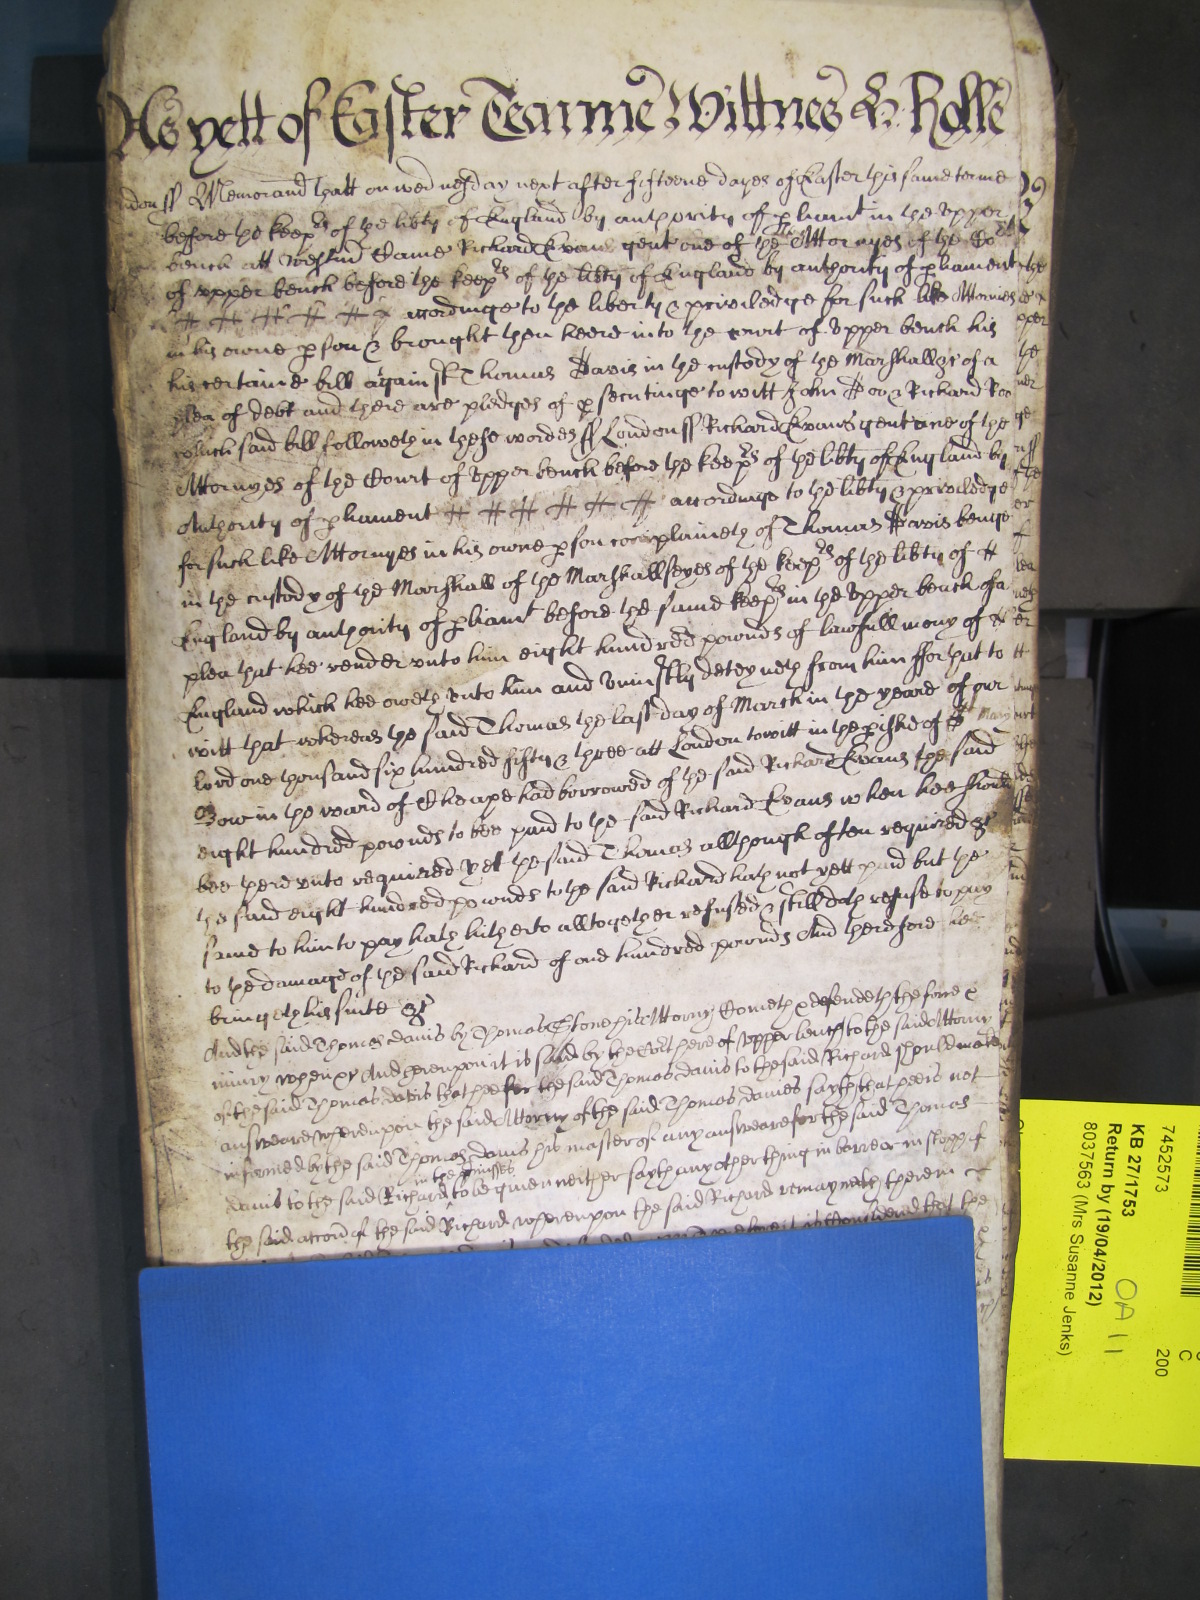 As yett of Easter Tearme Wittnes H: Rolle
ndon ss Memorand that on wednesday next after fifteene dayes of Easter this same terme
before the keeprs of the libty of England by authority of pliamt in the upper
bench att Westmr Came Richard Evans gent one of the Attornyes of the Cort
of upper bench before the keeprs of the libty of England by authority of pliament
accordinge to the liberty & priviledge for such like Attornies
in his owne pson & brought then heere into the court of Upper bench his
his certaine bill against Thomas Davis in the custody of the Marshall &c of a
plea of debt and there are pledges of psecutinge to witt John Doo & Richard Roo
which said bill followeth in these wordes ss London ss Richard Evans gent one of the
Attornyes of the Court of Upper bench before the keeprs of the libty of England by
Authority of pliament accordinge to the libty & priviledge
for such like Attornyes in his owne pson complaineth of Thomas Davis beinge
in the custody of the Marshall of the Marshallseyes of the keeprs of the libty of
England by authority of pliamt before the same keeprs in the Upper bench of a
plea that hee render unto him eight hundred pownds of lawfull mony of
England which hee oweth unto him and uniustly deteyneth from him ffor that to
witt that whereas the said Thomas the last day of March in the yeare of our
lord one thousand six hundred fifty & three att London to witt in the pishe of St Mary
Bow in the ward of Cheape had borrowed of the said Richard Evans the said
eight hundred pownds to bee paid to the said Richard Evans when hee should
bee therunto required yet the said Thomas allthough often required &c
the said eight hundred pownds to the said Richard hath not yett paid but the
same to him to pay hath hitherto alltogether refused & still doth refuse to pay
to the damage of the said Richard of one hundred pownds And therefore hee
bringeth his suite &c
And the said Thomas davis by Thomas Stone his Attorny Cometh & defendeth the force &
iniury when &c And hereupon it is said by the Cort here of Upper bench to the said Attorny
of the said Thomas davis that hee for the said Thomas davis to the said Richard should make
answeare whereupon the said Attorny of the said Thomas davies sayth that hee is not
informed by the said Thomas davis his master of any answeare for the said Thomas
in the pmisses
davis to the said Richard to be given neither sayth any other thing in barre or in stopp of
the said accon of the said Richard whereupon the said Richard remayneth therein
is Considered that the
7452573
KB 27/1753
Return by (19/04/2012)
8037563 (Mrs Susanne Jenks)
OA 11
C
200